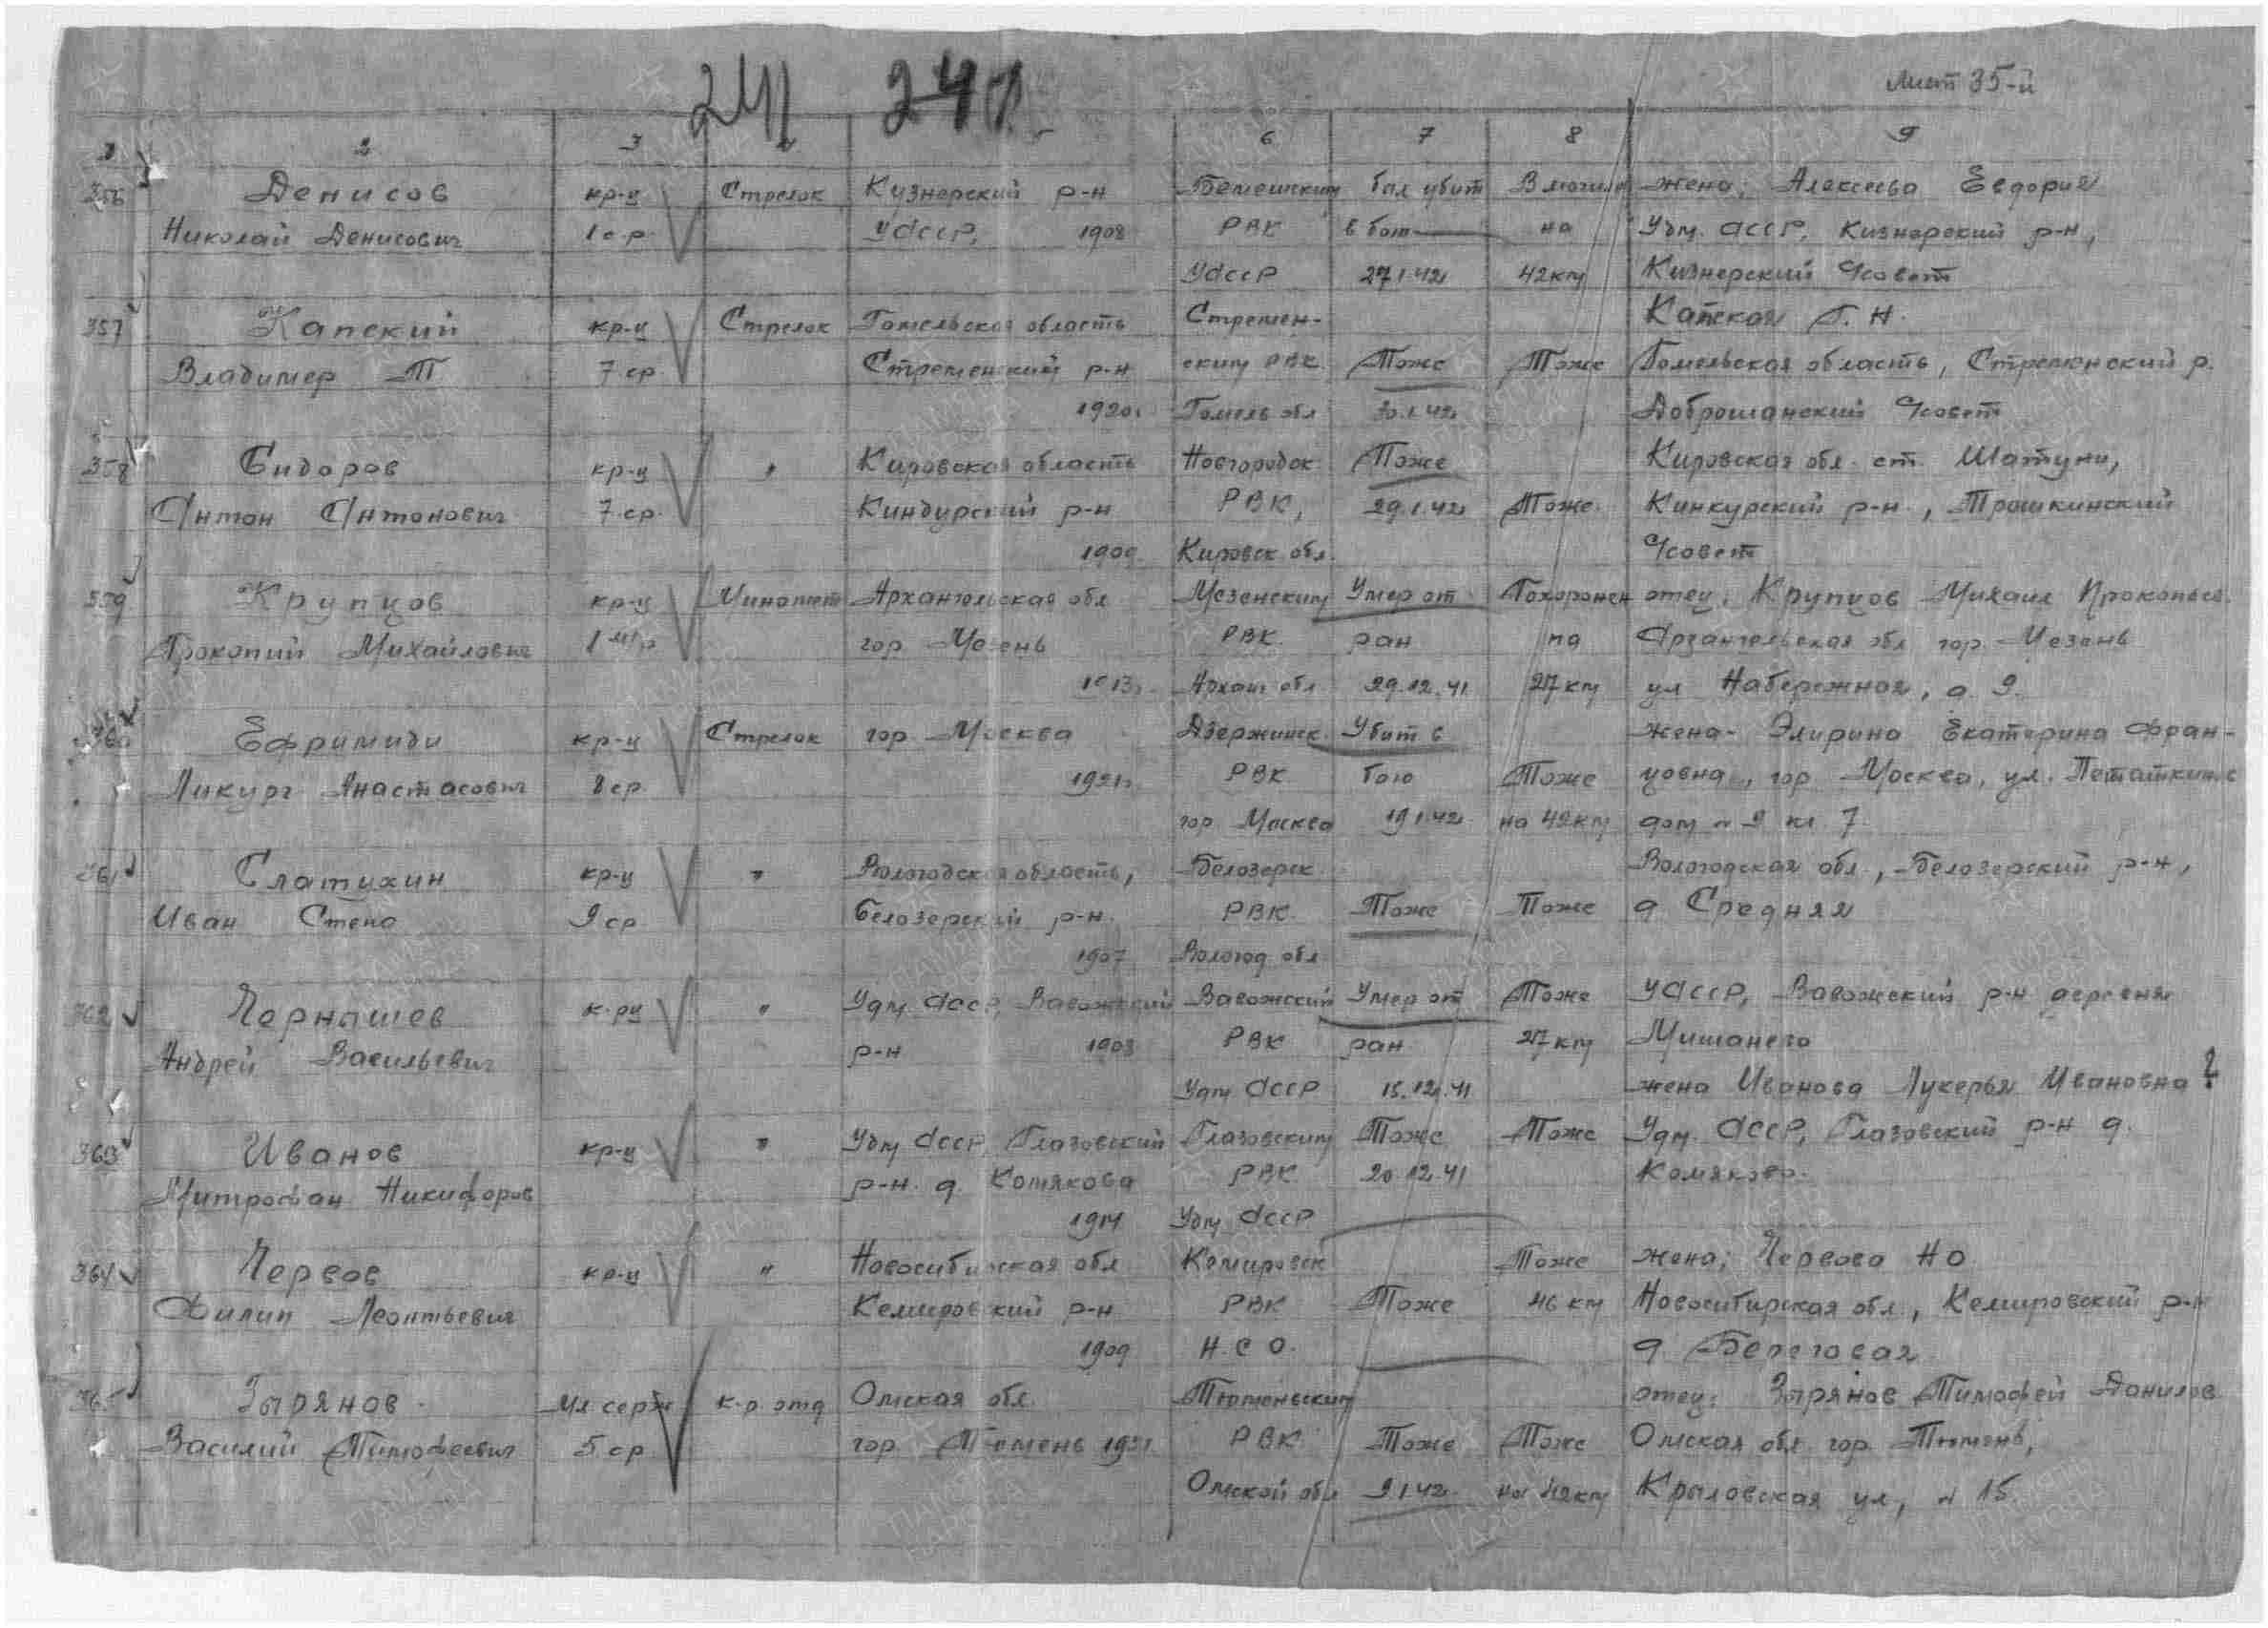 241 241
Лист 35-й
1 2 3 4 5 6 7 8 9
356 Денисов кр-ц Стрелок Кузнерский р-н был убит В могиле жена; Алексеева Евдория
Николай Денисович 1 ср. УАССР, 1908 РВК в бою на Удм. АССР, Кизнерский р-н,
УАССР 27.1.42 42 км Кизнерский С/совет
357 Капский кр-ц Стрелок Гомельская область Стремен- Капская Г. Н.
Владимер Т 7 ср. Стременский р-н ским РВК Тоже Тоже Гомельская область, Стременский р.
1920г. Гомель обл 20.1.42 С/совет
358 Сидоров кр-ц " Кировская область Новгородск Тоже Кировская обл. ст. Шатуни,
Антон Антонович 7.ср. Киндурский р-н РВК, 29.1.42 Тоже. Кинкурский р-н, Трошкинский
1909 Кировск. обл. С/совет
359 Крупцов кр-ц Миномет Архангельская обл Мезенским Умер от Похоронен отец. Крупцов Михаил Прокопьев.
Прокопий Михайлович гор Мезень РВК ран на Арзангельская обл гор. Мезень
1913г. Архан обл 29.12.41 27 км ул Набережная, д. 9.
360 Ефримиди кр-ц Стрелок гор Москва Дзержинск Убит в жена- Элирина Екатерина Фран-
Ликург Анастасович 8 ср. 1921г. РВК бою Тоже цовна, гор Москва, ул.
гор Москва 19.1.42 на 42 км дом № 9 кв. 7.
361 Слатихин кр-ц " Вологодская область, Белозерск Вологодская обл., Белозерский р-н,
Иван Степа 9 ср Белозерский р-н. РВК. Тоже Тоже д Средняя
1907 Вологод обл
362 Чернышев к-рц " Удм. АССР, Вавожский Вавожский Умер от Тоже УАССР, Вавожский р-н деревня
Андрей Васильевич р-н 1903 РВК ран 27 км Мишанего
Удм АССР 15.12.41 жена Иванова Лукерья Ивановна ?
363 Иванов кр-ц " Удм АССР, Глазовский Глазовским Тоже Тоже Удм. АССР, Глазовский р-н д.
Митрофан Никифоров р-н. д. Комякова РВК 20.12.41 Комяково.
1914 Удм АССР
364 Червов кр-ц " Новосибирская обл Кемировск Тоже жена; Червова Н О
Филип Леонтьевич Кемировский р-н РВК Тоже 46 км Новосибирская обл, Кемировский р-н
1909 Н. С О. д Береговая
365 Зырянов. Мл серж к-р отд Омская обл. Тюменьским отец: Зырянов Тимофей Данилов
Василий Тимофеевич 5 ср гор Тюмень РВК Тоже Тоже Омская обл. гор. Тюмень,
Омской обл 9.1.42. на 42км Крыловская ул, № 15.